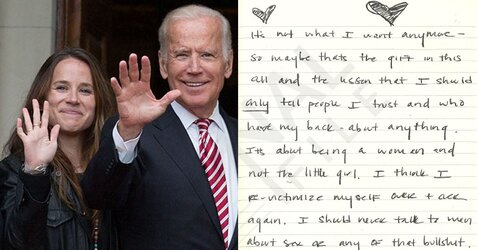 It's not what I want anymore -
So maybe thats the gift in this
all and the lesson that I should
only tell people I trust and who
have my back about anything.
Its about being a woman and
not the little girl. I think I
re-victimize myself over +
again. I should never talk to men
about sex or any of that bullshit.